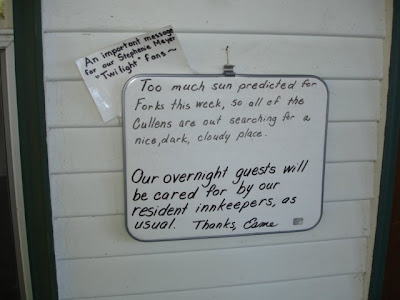 An important message
for our Stephenie Meyer
"Twilight" fans ~
Too much sun predicted for
Forks this week, so all of the
Cullens are out searching for a
nice, dark, cloudy place.
Our overnight guests will
be cared for by our
resident innkeepers, as
usual. Thanks, Esme